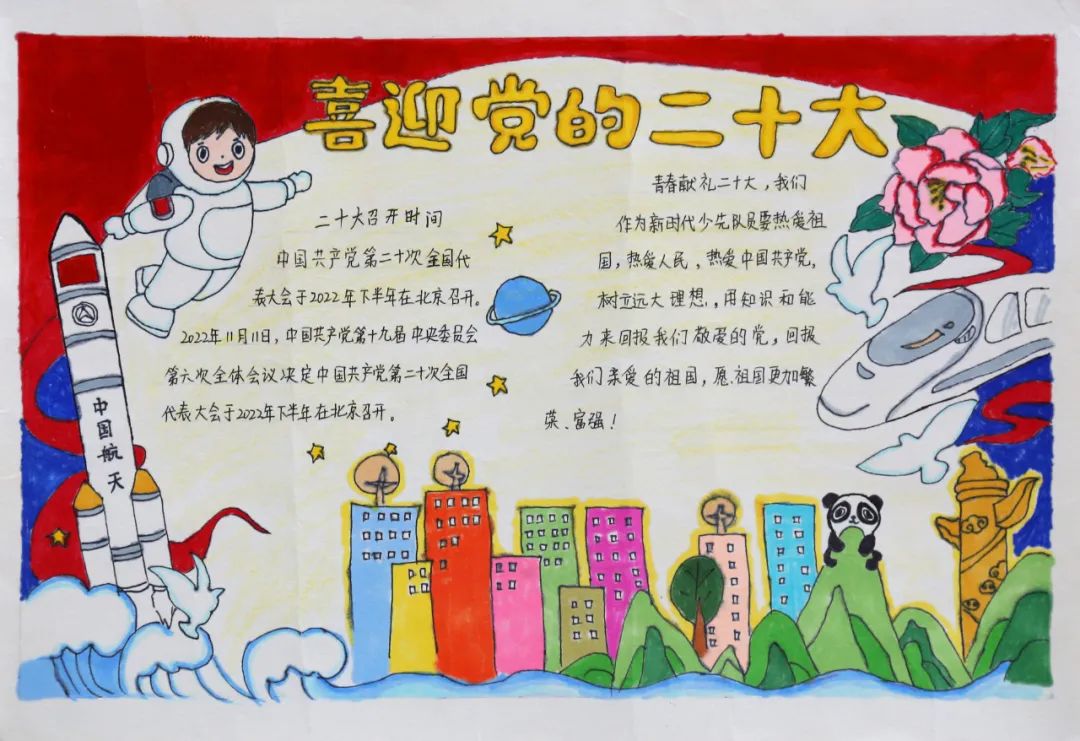 喜迎党的二十大
二十大召开时间
中国共产党第二十次全国代
表大会于2022年下半年在北京召开。
2022年11月11日,中国共产党第十九届中央委员会
第六次全体会议决定中国共产党第二十次全国
代表大会于2022年下半年在北京召开。
青春献礼二十大,我们
作为新时代少先队员要热爱祖
国,热爱人民、热爱中国共产党,
树立远大理想,用知识和能
力来回报我们敬爱的党,回报
我们亲爱的祖国,愿祖国更加繁
荣、富强!
中国航天